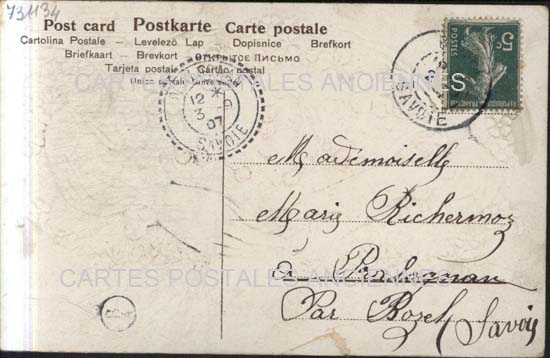 731134
Post card Postkarte Carte postale
Cartolina Postale – Levelező Lap Dopisnice Brefkort
Briefkaart – Brevkort – ОТКРЫТОЕ ПИСЬМО
Tarjeta postal – Cartão postal
Union postale universelle
CARTES POSTALES ANCIENNES
12 *
3 9
07
SAVOIE
SAVOIE
POSTES
5c
REPUBLIQUE FRANÇAISE
Mademoiselle
Marie Richermoz
à Pralognan
CARTES POSTALES ANCIENNES
Par Bozel
Savoie